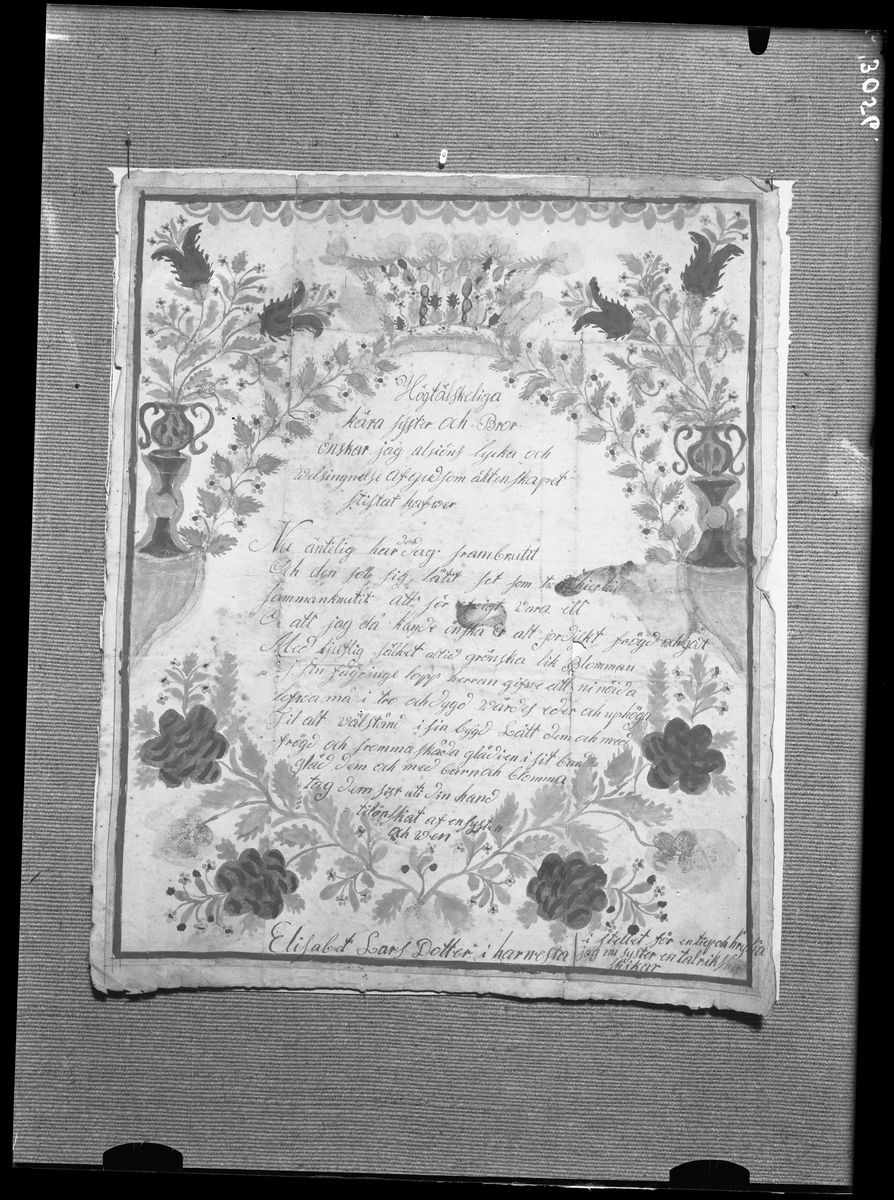 3056.
Högtälskeliga
kära syster och Bror
önskar jag alsiöns lycka och
welsingnelse af gud som äktenskapet
stiftat hafwer
Nu äntelig har den dag frambrutit
Och den sol sig låtit set som hiertan
sammanknutit att för ewigt vara ett
O att jag då kunde önska Er alt jordiskt frögd och gåt
Med liuflig sälhet altid grönska lik Blomman
i sin fägringe lopp herran gifwe att ni nöida
lefwa må i tro och dygd wärdes eder och uphöga
Til alt wälstånd i sin bygd Lått dem och med
frögd och fromma skåda glädien i sit band
gläd dem och med barn och blomma
tag dem sist uti din hand
tilönskat af en syster
och wen
Elisabet Lars Dotter i harnesta
i stellet för en trep och hryta
jag nu syster en talrik
skikar